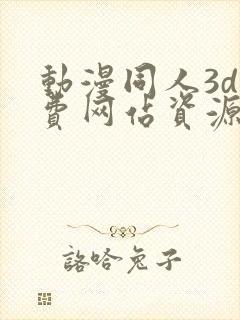 動漫同人3d
費网佔資源
詻哈兔子